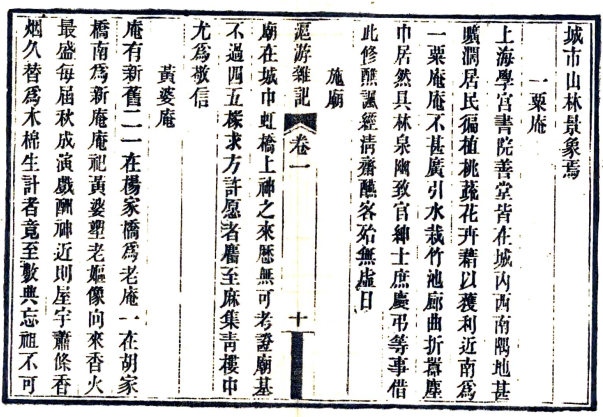 城市山林景象焉
一粟庵
上海學宮書院善堂皆在城內西南隅地甚
曠濶居民徧植桃蔬花卉藉以獲利近南爲
一粟庵庵不甚廣引水栽竹池廊曲折囂塵
中居然具林泉幽致官紳士庶慶弔等事借
此修醮諷經清齋醼客殆無虛日
施廟
滬游雜記
卷一
十
廟在城中虹橋上神之來歷無可考證廟基
不過四五椽求方許愿者麕至麻集青樓中
尤爲敬信
黃婆庵
庵有新舊二一在楊家橋爲老庵一在胡家
橋南爲新庵庵祀黃婆塑老嫗像向來香火
最盛每屆秋成演戲酬神近則屋宇蕭條香
烟久替爲木棉生計者竟至數典忘祖不可